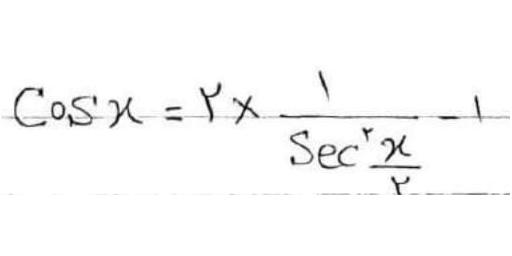 Cos x = ۲ × ۱ / Sec^۲ (x/۲) - ۱